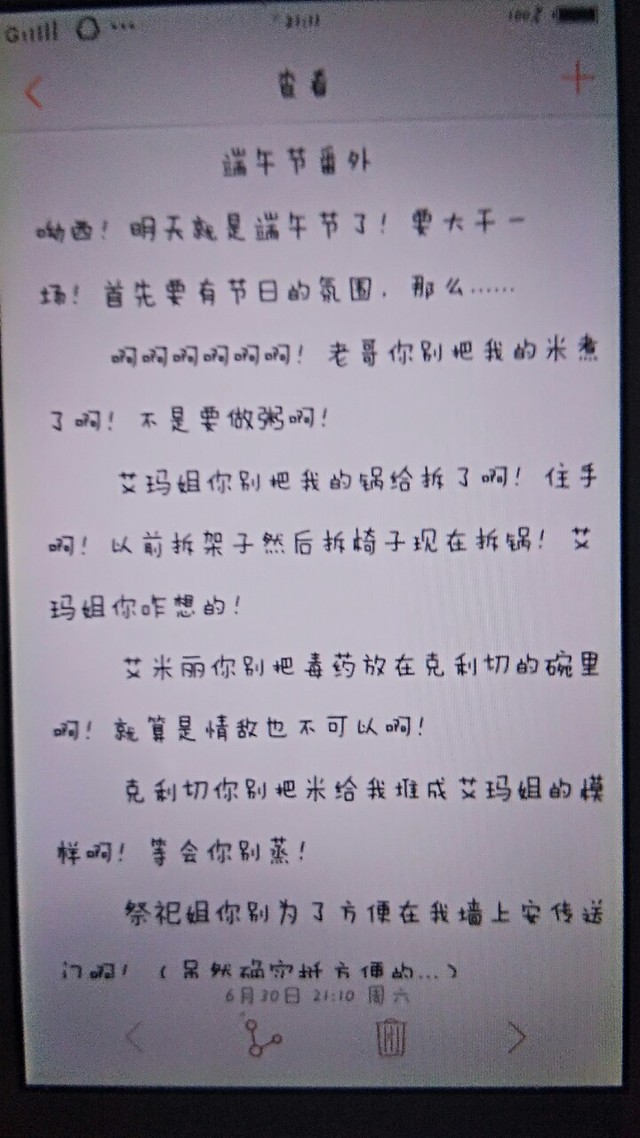 21:11
100%
查看
端午节番外
呦西！明天就是端午节了！要大干一
场！首先要有节日的氛围，那么……
啊啊啊啊啊啊！老哥你别把我的米煮
了啊！不是要做粥啊！
艾玛姐你别把我的锅给拆了啊！住手
啊！以前拆架子然后拆椅子现在拆锅！艾
玛姐你咋想的！
艾米丽你别把毒药放在克利切的碗里
啊！就算是情敌也不可以啊！
克利切你别把米给我堆成艾玛姐的模
样啊！等会你别蒸！
祭祀姐你别为了方便在我墙上安传送
门啊！（虽然确实挺方便的…）
6月30日 21:10 周六